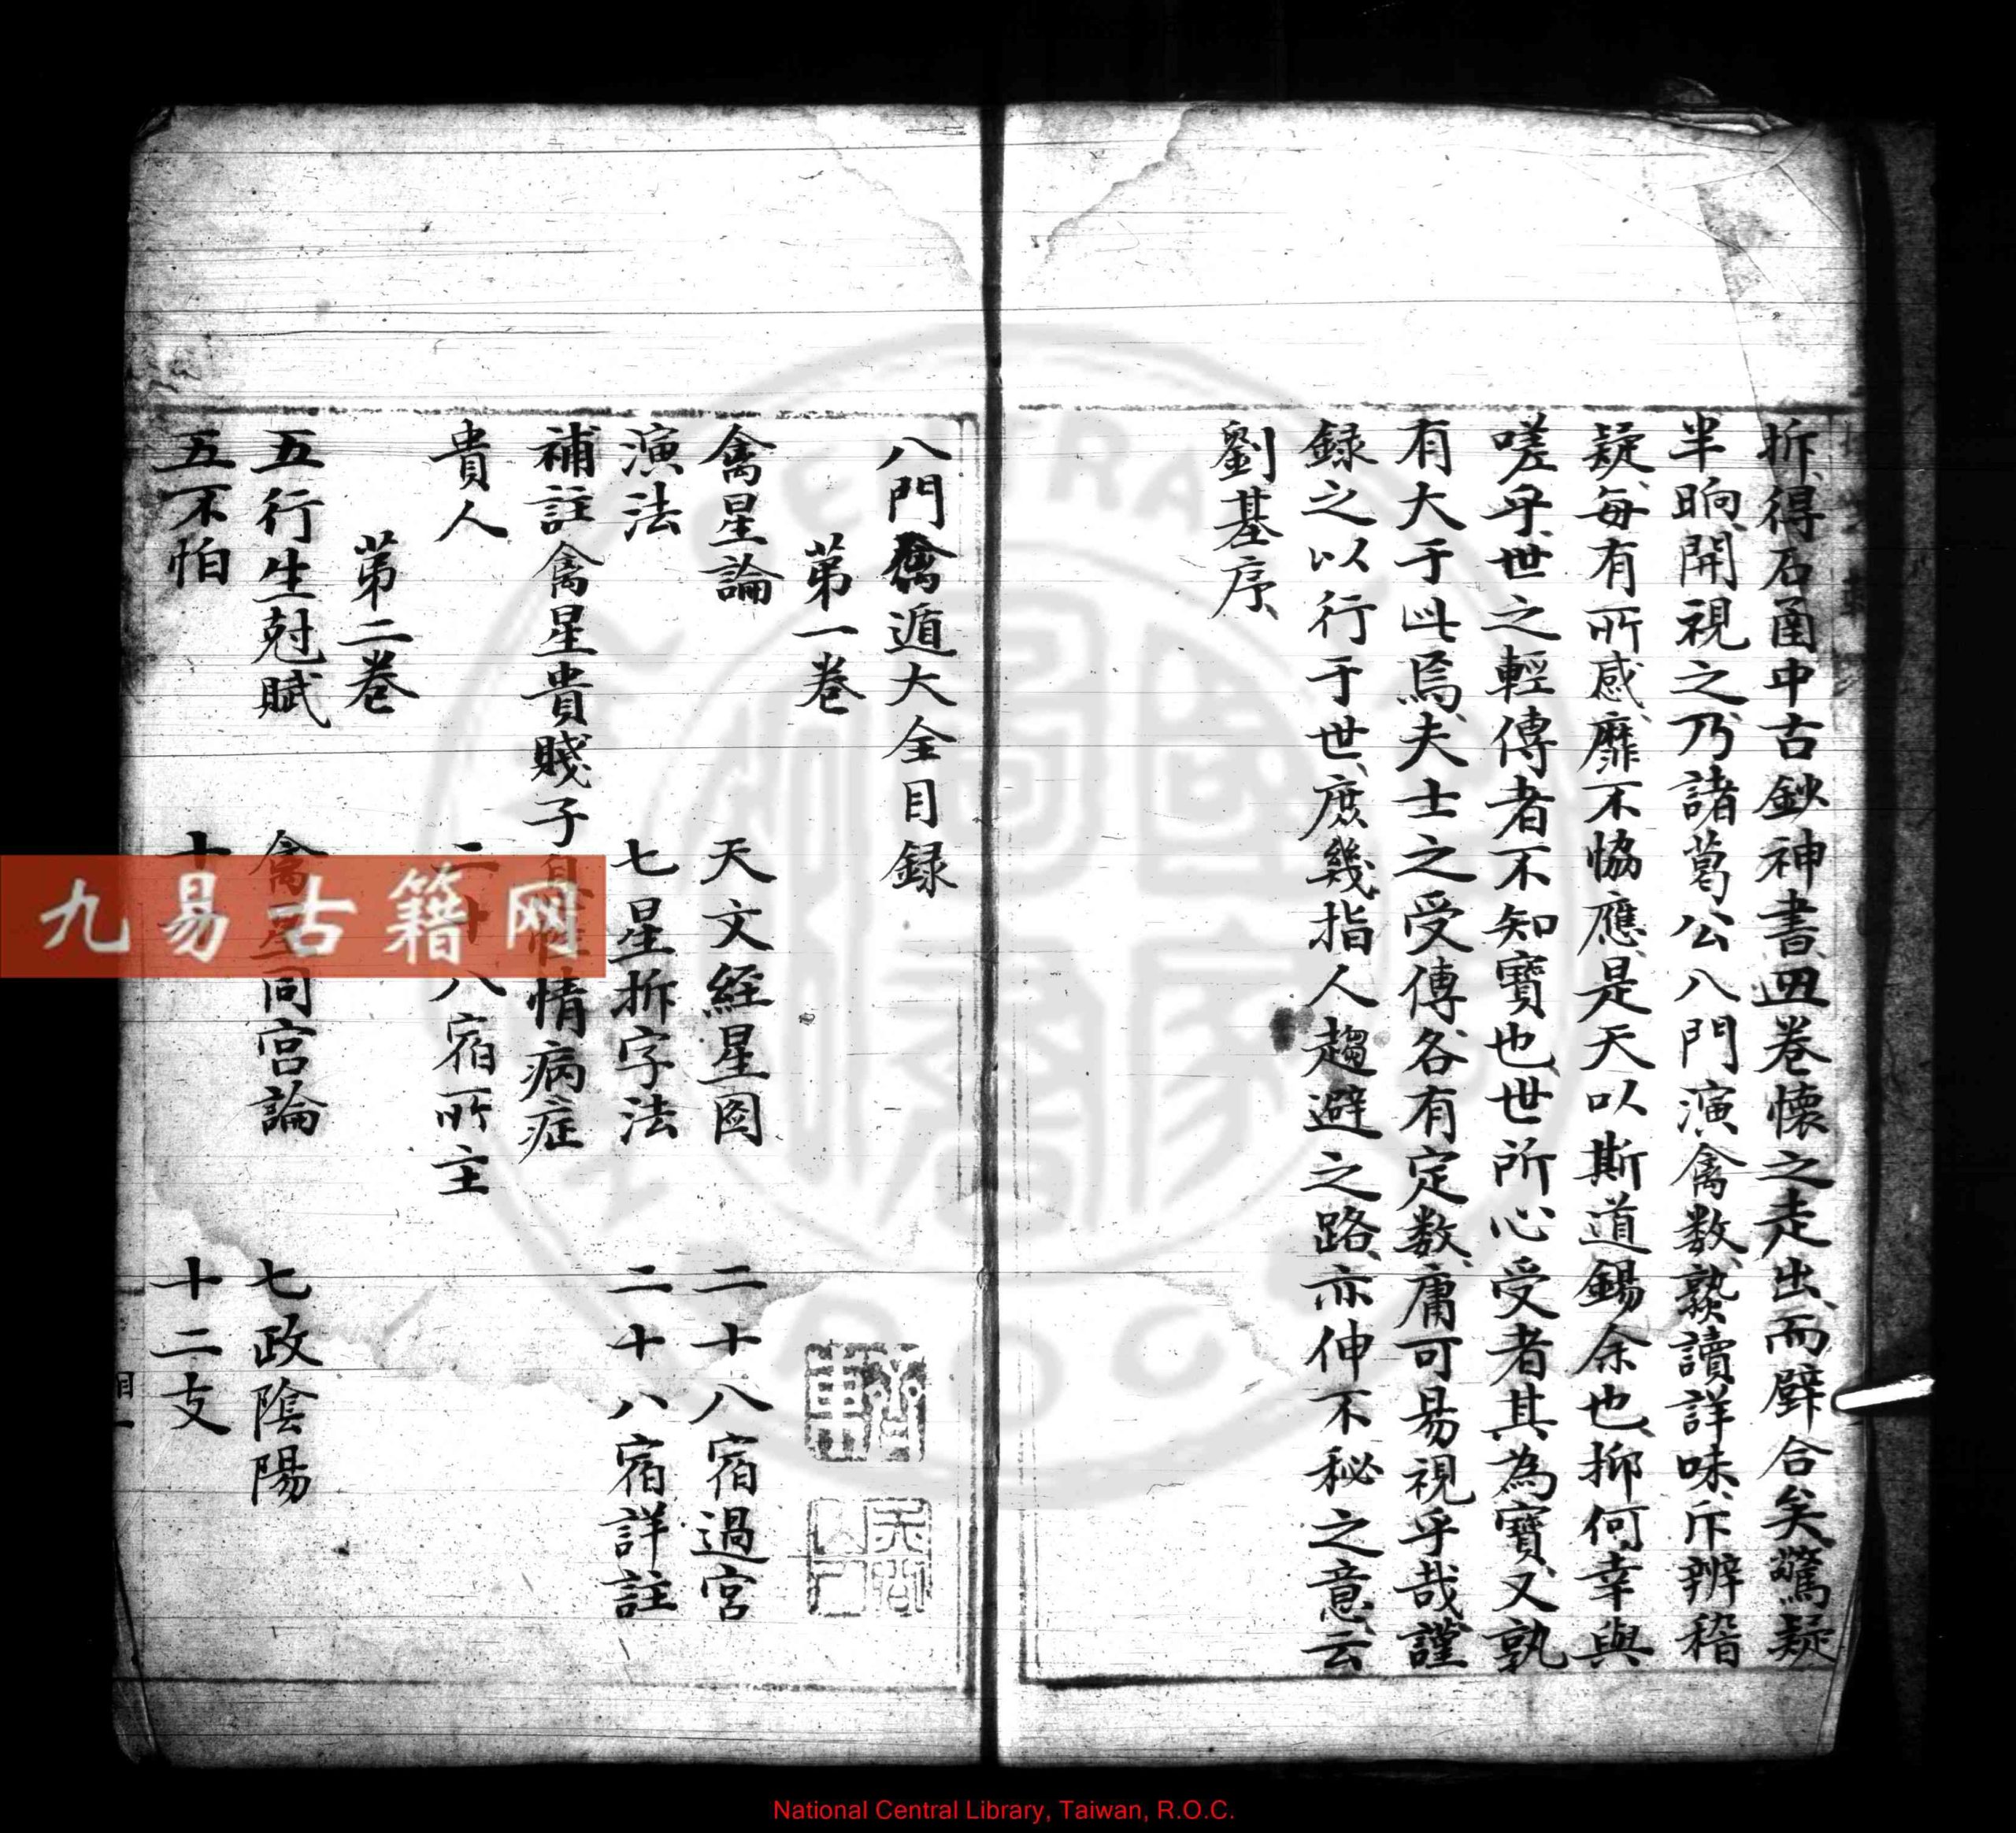 拆得石凾中古鈔神書四巻懷之走出而壁合矣驚疑
半晌開視之乃諸葛公八門演禽数熟讀詳味斥辨稽
疑每有所感靡不恊應是天以斯道錫余也抑何幸與
嗟乎世之輕傳者不知寶也世所心受者其為寶又孰
有大于此焉夫士之受傳各有定数庸可易視乎哉謹
録之以行于世庶幾指人趨避之路亦伸不秘之意云
劉基序
八門禽遁大全目録
第一巻
禽星論 天文經星圖 二十八宿過宮
演法 七星拆字法 二十八宿詳註
補註禽星貴賤子息性情病症
貴人 二十八宿所主
第二巻
五行生尅賦 禽星同宫論 七政陰陽
五不怕 十 十二支
九易古籍网
National Central Library, Taiwan, R.O.C.